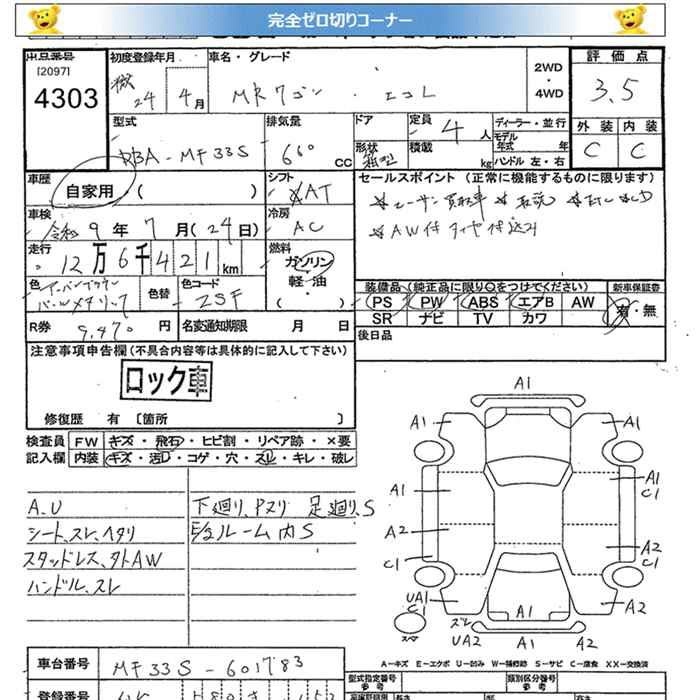 完全ゼロ切りコーナー
出品番号
[2097]
4303
初度登録年月
24年 4月
車名・グレード
MRワゴン エコL
2WD
・
4WD
評価点
3.5
外装 内装
C C
型式
DBA-MF33S
排気量
660 CC
ドア
形状
箱型
定員
4人
積載
kg
ディーラー・並行
モデル
年式 年
ハンドル 左・右
車歴
自家用・( )
シフト
AT
セールスポイント (正常に機能するものに限ります)
車検
令和9年7月(24日)
冷房
AC
*AW付タイヤ積込み
走行
12万6千421km
燃料
ガソリン
軽・油
・( )
色
アーバンブラウン
パールメタリック
色替
色コード
ZSF
装備品 (純正品に限り○をつけてください)
新車保証書
PS PW ABS エアB AW
SR ナビ TV カワ
有・無
R券
9,470円
名変通知期限 月 日
後日品
注意事項申告欄(不具合内容等は具体的に記入して下さい)
ロック車
修復歴 有 [箇所 ]
検査員 FW キズ・飛石・ヒビ割・リペア跡・×要
記入欄 内装 キズ・汚レ・コゲ・穴・スレ・キレ・破レ
A.U
シート、スレ、ヘタリ
スタッドレス、タトAW
ハンドル、スレ
下廻り、Pヌリ 足廻り、S
E/gルーム内S
A1
A1 A1
A1 A1
C1
A2 A2
C1
UA1
C1
A2
スペア
ズレ
UA2
A1
A1
A2
A-キズ E-エクボ U-凹み W-補修跡 S-サビ C-腐食 XX-交換済
車台番号
MF33S-601783
登録番号
型式指定番号
参考
類別区分番号
参考